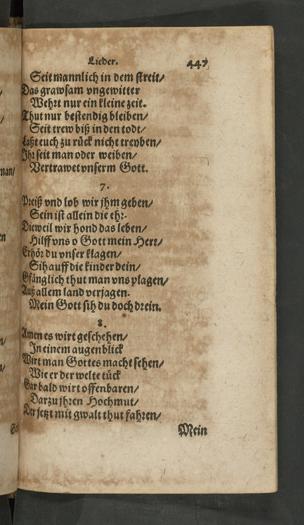 Lieder. 447
Seit mannlich in dem streit/
Das grawsam vngewitter
Wehrt nur ein kleine zeit.
Thut nur bestendig bleiben/
Seit trew biß in den todt/
Laßt euch zu rück nicht treyben/
Ihr seit man oder weiben/
Vertrawet vnserm Gott.
7.
Preiß vnd lob wir jhm geben/
Sein ist allein die ehr.
Dieweil wir hond das leben/
Hilff vns o Gott mein Herr/
Erhör du vnser klagen/
Sih auff die kinder dein/
Gfänglich thut man vns plagen/
Auß allem land verjagen.
Mein Gott sih du doch drein.
8.
Amen es wirt geschehen/
In einem augenblick
Wirt man Gottes macht sehen/
Wie er der welte tück
Gar bald wirt offenbaren/
Darzu jhren Hochmut/
Der jetzt mit gwalt thut fahren/
Mein